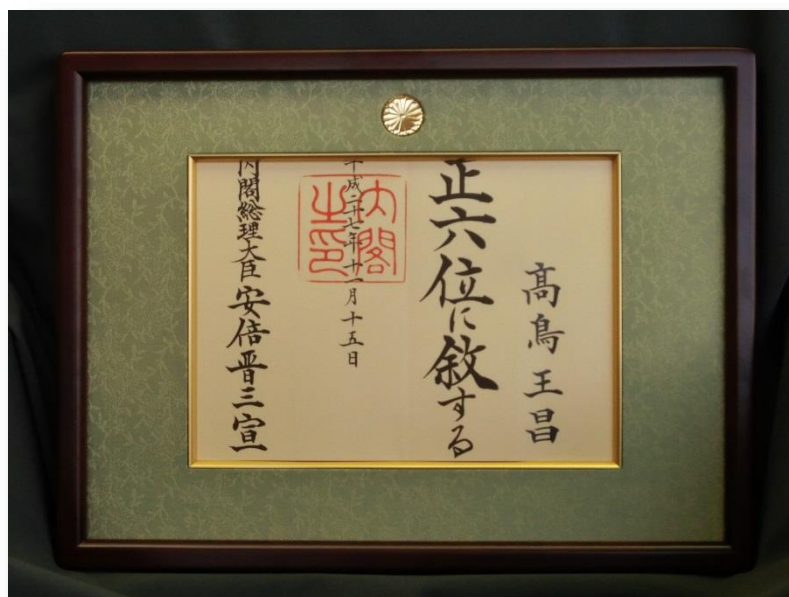 髙鳥王昌
正六位に敘する
平成二十七年十一月十五日
内閣之印
内閣総理大臣安倍晋三宣